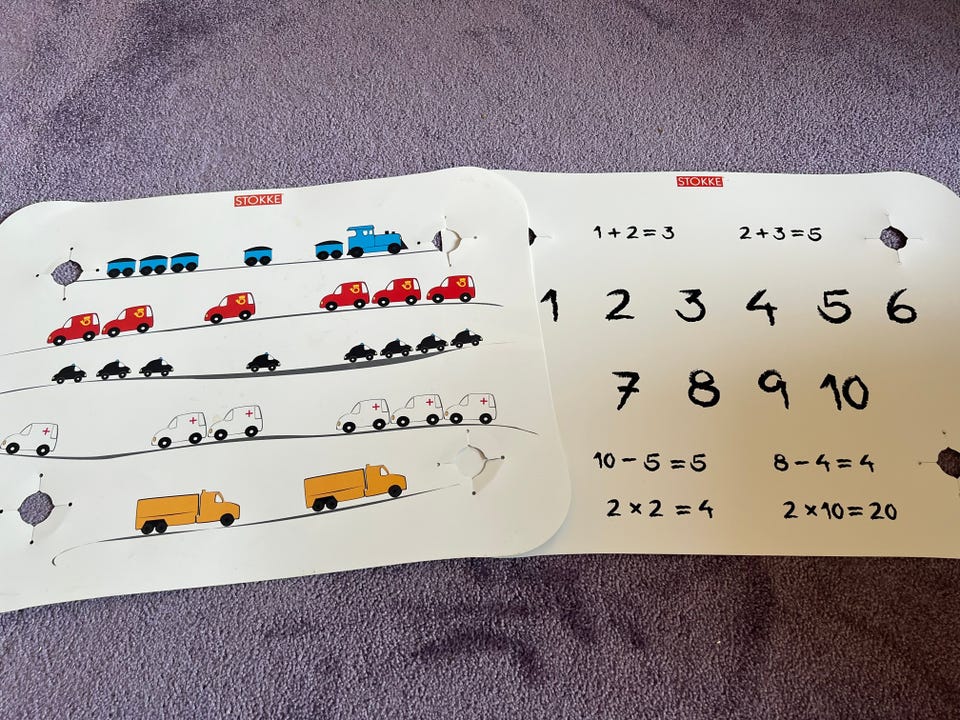 STOKKE
STOKKE
1+2=3 2+3=5
1 2 3 4 5 6
7 8 9 10
10-5=5 8-4=4
2×2=4 2×10=20